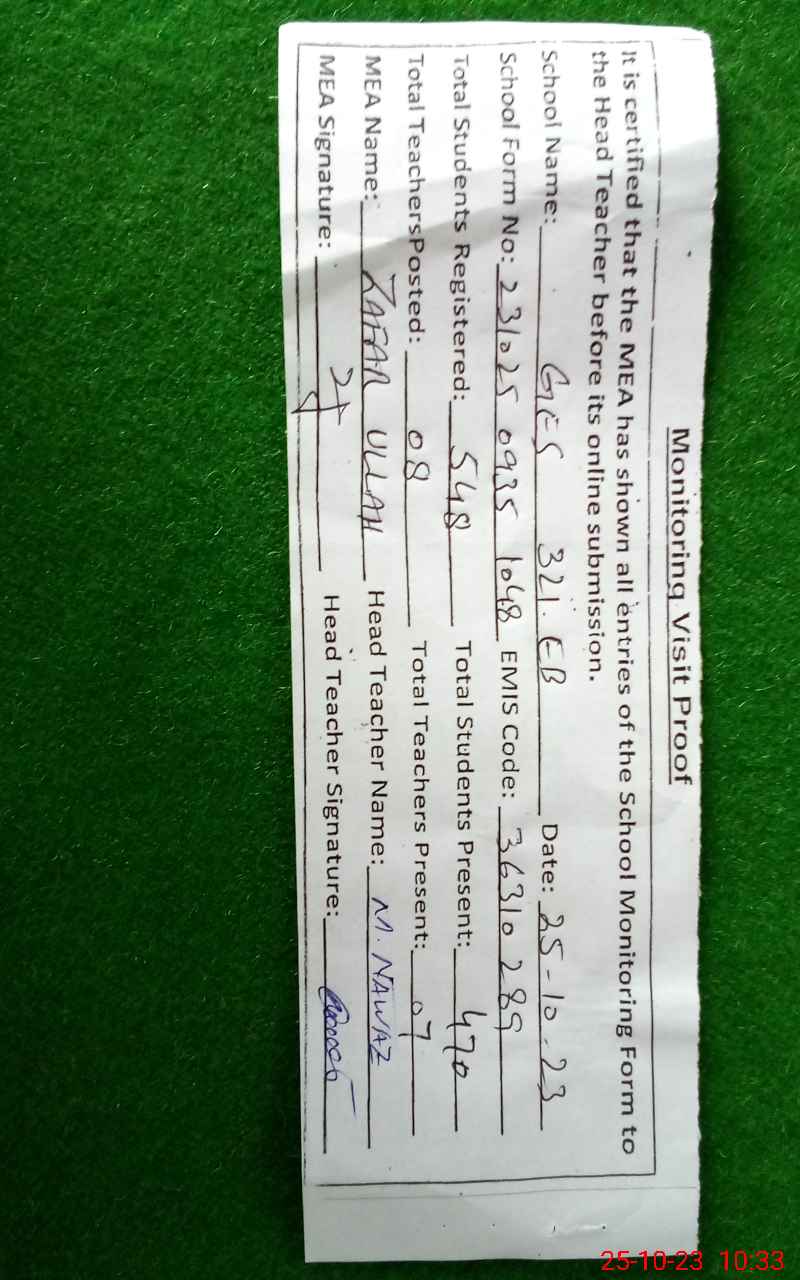 Monitoring Visit Proof
It is certified that the MEA has shown all entries of the School Monitoring Form to
the Head Teacher before its online submission.
School Name: GES 321.EB Date: 25-10-23
School Form No: 231025 0935 1048 EMIS Code: 36310289
Total Students Registered: 548 Total Students Present: 470
Total TeachersPosted: 08 Total Teachers Present: 07
MEA Name: ZAFAR ULLAH Head Teacher Name: M. NAWAZ
MEA Signature: Head Teacher Signature:
25-10-23 10:33